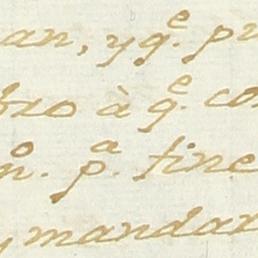 an, y q.e pr
bro à q.e con
n. p.a fine
y mandar